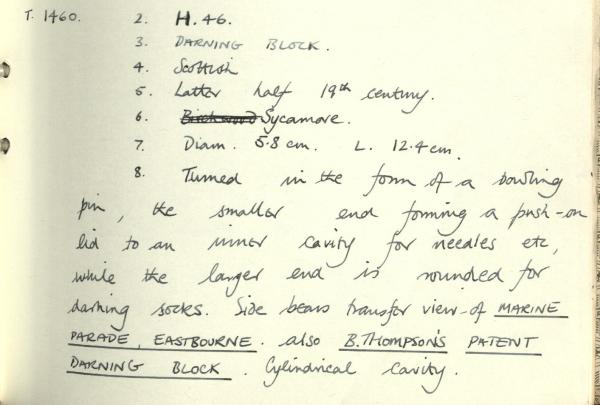 T. 1460. 2. H. 46.
3. DARNING BLOCK.
4. Scottish
5. Latter half 19th century.
6. Birchwood Sycamore.
7. Diam. 5.8 cm. L. 12.4 cm.
8. Turned in the form of a bowling
pin, the smaller end forming a push-on
lid to an inner cavity for needles etc,
while the larger end is rounded for
darning socks. Side bears transfer view of MARINE
PARADE, EASTBOURNE. also B.THOMPSON'S PATENT
DARNING BLOCK. Cylindrical cavity.